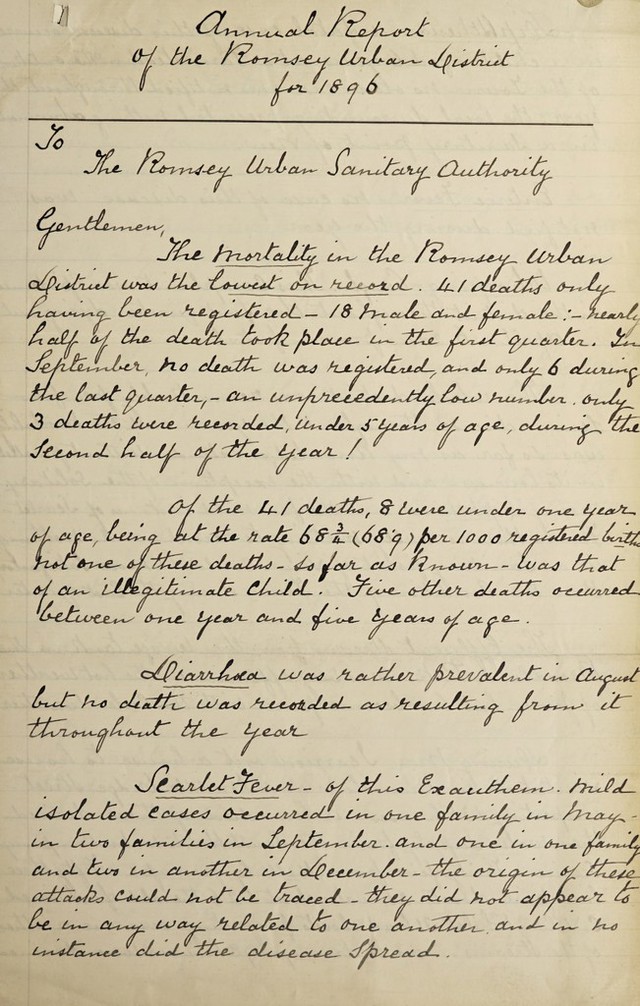 Annual Report
of the Romsey Urban District
for 1896
To
The Romsey Urban Sanitary Authority
Gentlemen,
The Mortality in the Romsey Urban
District was the lowest on record. 41 deaths only
having been registered - 18 male and female :- nearly
half of the death took place in the first quarter. In
September, no death was registered, and only 6 during
the last quarter, - an unprecedently low number. only
3 deaths were recorded, under 5 years of age, during the
second half of the year!
Of the 41 deaths, 8 were under one year
of age, being at the rate 68 (68.9) per 1000 registered births
not one of these deaths - so far as known - was that
of an illegitimate child. Five other deaths occurred
between one year and five years of age.
Diarrhoea was rather prevalent in August
but no death was recorded as resulting from it
throughout the year
Scarlet Fever - of this Exanthem. mild
isolated cases occurred in one family in May -
in two families in September. and one in one family
and two in another in December - the origin of these
attacks could not be traced - they did not appear to
be in any way related to one another and in no
instance did the disease spread.